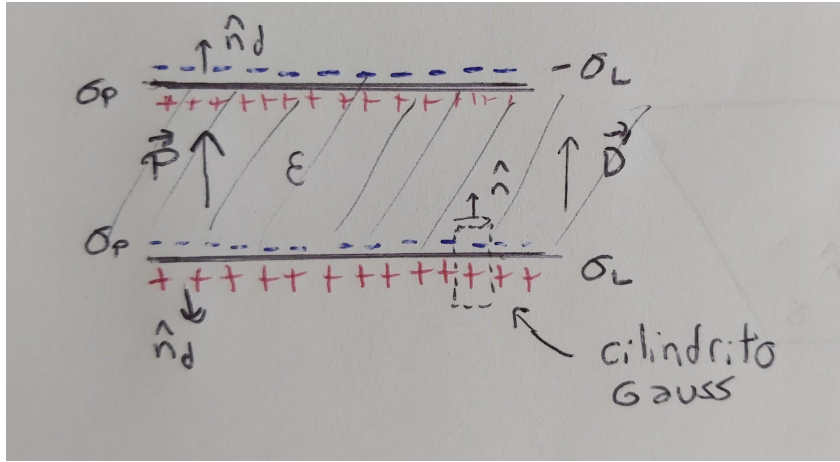 n̂d
-σL
σP
P⃗
ε
n̂
D⃗
σP
σL
n̂d
cilindrito
Gauss